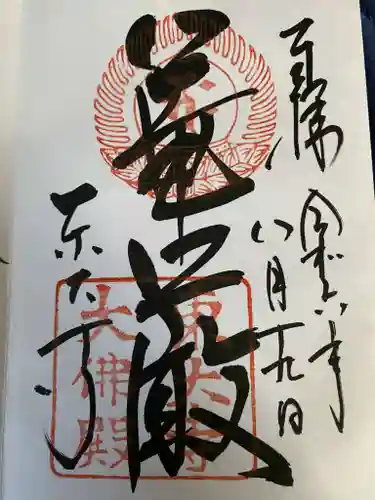 奉拝
令和六年
八月十九日
華厳
東大寺
東大寺
大佛殿